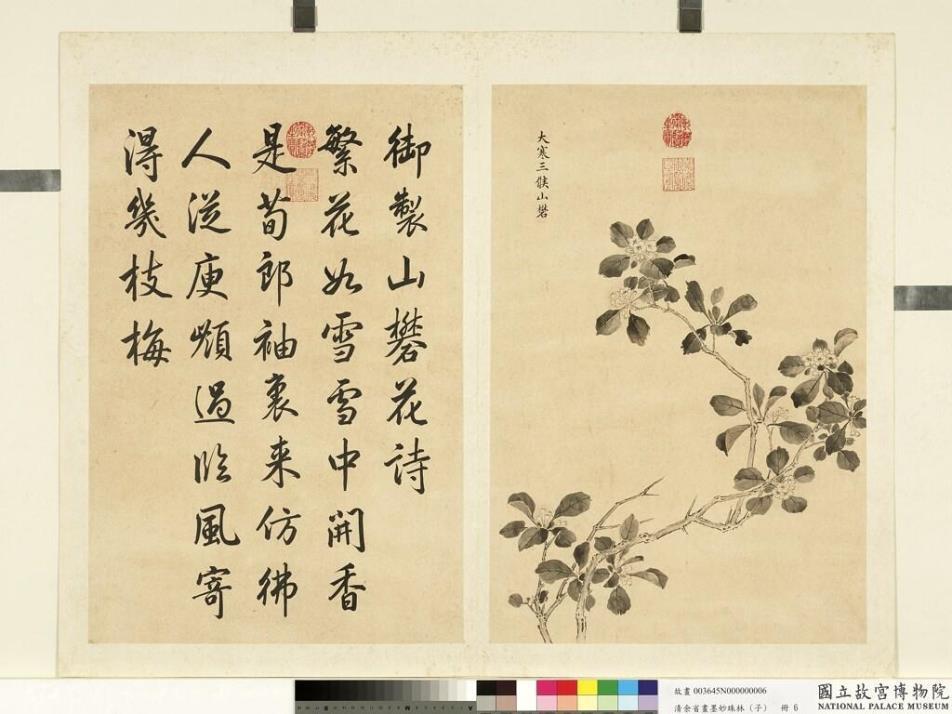 大寒三候山礬
御製山礬花詩
繁花如雪雪中開香
是荀郎袖裏来仿彿
人從庾嶺過臨風寄
得幾枝梅
故畫 003645N000000006
清余省畫墨妙珠林（子） 冊 6
國立故宮博物院
NATIONAL PALACE MUSEUM